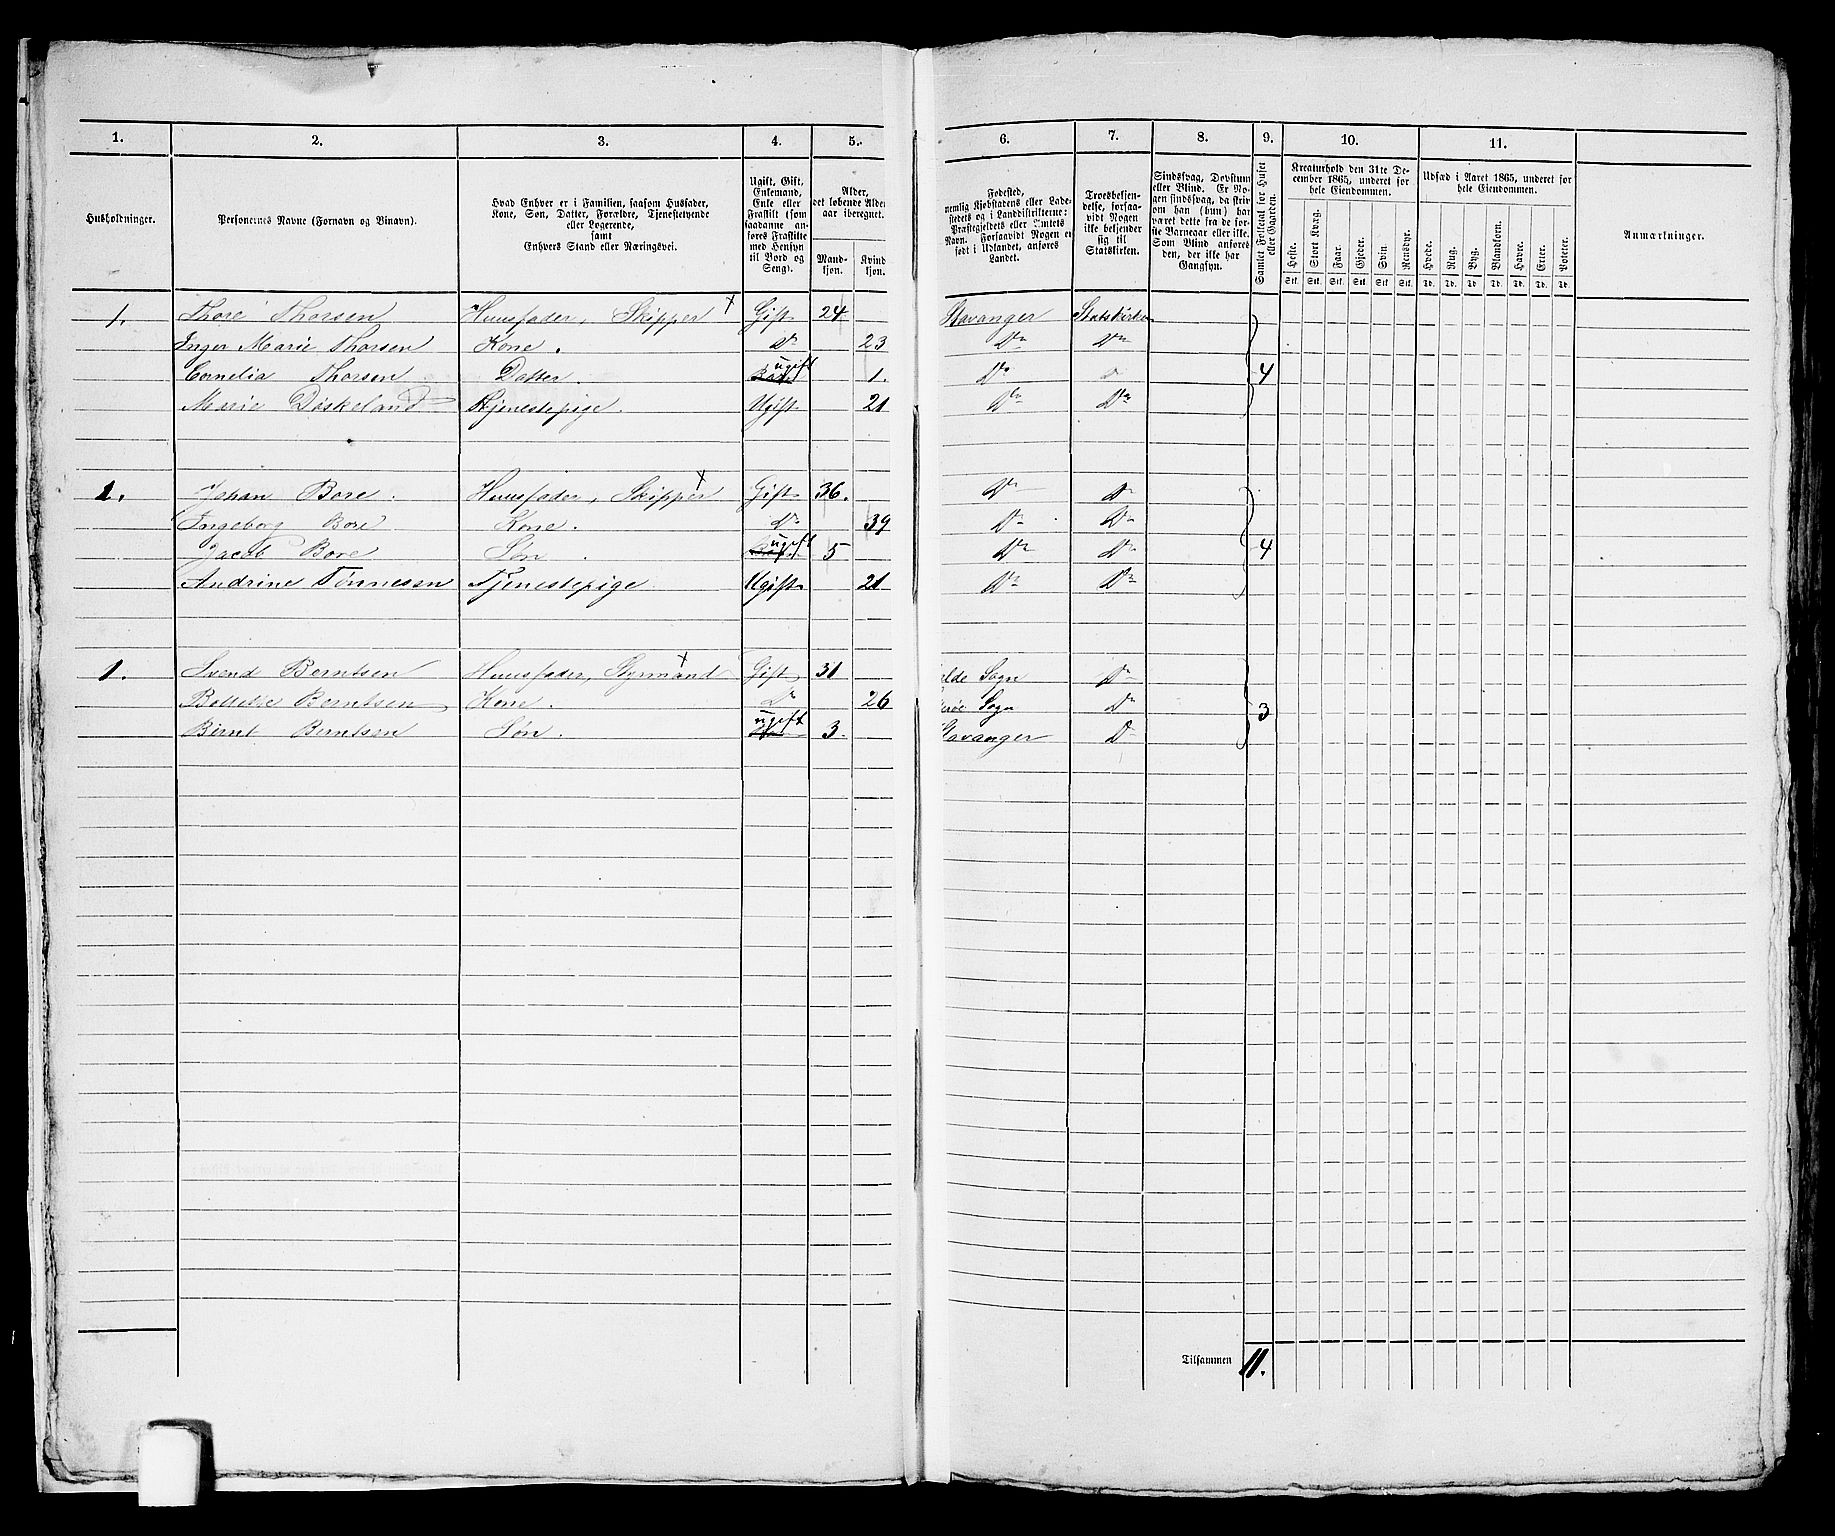 1. 2. 3. 4. 5. 6. 7. 8. 9. 10. 11.
Husholdninger.
Personernes Navne (Fornavn og Binavn).
Hvad Enhver er i Familien, saasom Husfader,
Kone, Søn, Datter, Forældre, Tjenestetyende
eller Logerende,
samt
Enhvers Stand eller Næringsvei.
Ugift, Gift,
Enkemand,
Enke eller
Fraskilt (som
saadanne an-
føres Fraskilte
med Hensyn
til Bord og
Seng).
Alder,
det løbende Alders-
aar iberegnet.
Mand-
kjøn.
Kvind
kjøn.
Fødested,
nemlig Kjøbstadens eller Lade-
stedets og i Landdistrikterne:
Præstegjeldets eller Amtets
Navn. Forsaavidt Nogen er
født i Udlandet, anføres
Landet.
Troesbekjen-
delse, forsaa-
vidt Nogen
ikke bekjender
sig til
Statskirken.
Sindssvag, Døvstum
eller Blind. Er No-
gen sindssvag, da skriv
om han (hun) har
været dette fra de før-
ste Barneaar eller ikke.
Som Blind anføres
den, der ikke har
Gangsyn.
Samlet Folketal for Huset
eller Gaarden.
Kreaturhold den 31te De-
cember 1865, underet for
hele Eiendommen.
Heste. Stort Kvæg. Faar. Gjeder. Svin. Rensdyr.
Stk. Stk. Stk. Stk. Stk. Stk.
Udsæd i Aaret 1865, underet for
hele Eiendommen.
Hvede. Rug. Byg. Blandkorn. Havre. Erter. Poteter.
Td. Td. Td. Td. Td. Td. Td.
Anmærkninger.
1. Thore Thorsen Huusfader, Skipper x Gift 24 Stavanger Statskirke
Inger Marie Thorsen Kone. Do 23 Do Do
Cornelia Thorsen Datter. ugift 1. Do 4
Marie Døskeland Tjenestepige. Ugift 21 Do Do
1. Johan Bore. Huusfader, Skipper x Gift 36. Do Do
Ingeborg Bore Kone. Do 39 Do Do
Jacob Bore Søn. ugift 5 Do Do 4
Andrine Tønnesen Tjenestepige. Ugift 21 Do Do
1. Svend Berntsen Huusfader, Styrmand x Gift 31 elde Sogn Do
Berntsen Kone. Do 26 Sogn Do 3
Bernt Berntsen Søn. ugift 3. Stavanger Do
Tilsammen 11.